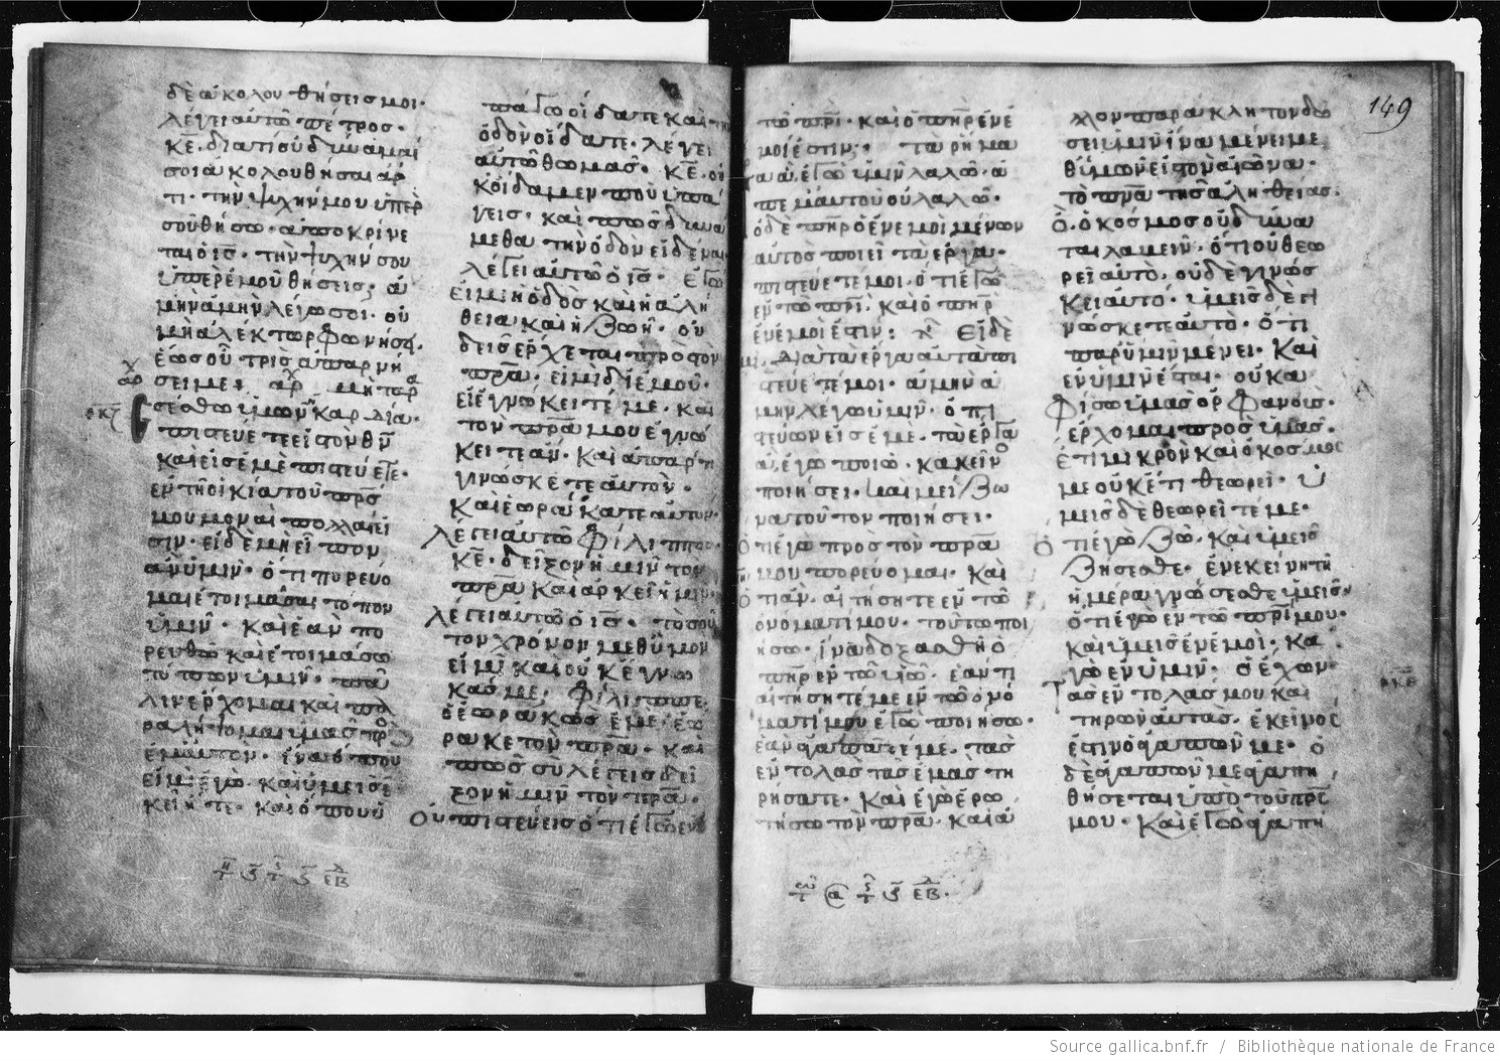 δὲ ἀκολουθήσεις μοι·
λέγει αὐτῶ πέτρος·
κ̅ε̅· διατί οὐ δύναμαί
σοι ἀκολουθῆσαι ἄρ
τι· τὴν ψυχήν μου ὑπὲρ
σοῦ θήσω· ἀποκρίνε
ται ὁ ι̅ς̅· τὴν ψυχήν σου
ὑπὲρ ἐμοῦ θήσεις· ἀ
μὴν ἀμὴν λέγω σοι· οὐ
μὴ ἀλέκτωρ φωνήσει·
ἕως οὗ τρὶς ἀπαρνή
σει με· μὴ ταρ
σέσθω ὑμῶν ἡ καρδία·
πιστεύετε εἰς τὸν θ̅ν̅
καὶ εἰς ἐμὲ πιστεύετε·
ἐν τῆ οἰκία τοῦ π̅ρ̅ς̅
μου μοναὶ πολλαί εἰ
σιν· εἰ δὲ μὴ εἶπον
ἂν ὑμῖν· ὅτι πορεύο
μαι ἑτοιμάσαι τόπον
ὑμῖν· καὶ ἐὰν πο
ρευθῶ καὶ ἑτοιμάσω
τόπον ὑμῖν· πά
λιν ἔρχομαι καὶ πα
ραλήψομαι ὑμᾶς πρ
ἐμαυτόν· ἵνα ὅπου
εἰμὶ ἐγὼ καὶ ὑμεῖς ἐ
κεῖ ἦτε· καὶ ὅπου ὑ
πάγω οἴδατε καὶ τὴν
ὁδὸν οἴδατε· λέγει
αὐτῶ θωμᾶς· κ̅ε̅· οὐ
κ οἴδαμεν ποῦ ὑπά
γεις· καὶ πῶς δυνά
μεθα τὴν ὁδὸν εἰδέναι·
λέγει αὐτῶ ὁ ι̅ς̅· ἐγώ
εἰμι ἡ ὁδὸς καὶ ἡ ἀλή
θεια καὶ ἡ ζωή· οὐ
δεὶς ἔρχεται πρὸς τὸν
π̅ρ̅α̅· εἰ μὴ δι ἐμοῦ·
εἰ ἐγνώκειτέ με· καὶ
τὸν π̅ρ̅α̅ μου ἐγνώ
κειτε ἄν· καὶ ἀπάρτι
γινώσκετε αὐτόν·
καὶ ἑωράκατε αὐτόν·
λέγει αὐτῶ φίλιππος·
κ̅ε̅· δεῖξον ἡμῖν τὸν
π̅ρ̅α̅ καὶ ἀρκεῖ ἡμῖν·
λέγει αὐτῶ ὁ ι̅ς̅· τοσοῦ
τον χρόνον μεθ ὑμῶν
εἰμὶ καὶ οὐκ ἔγνω
κάς με· φίλιππε·
ὁ ἑωρακὼς ἐμὲ· ἑώ
ρακε τὸν π̅ρ̅α̅· καὶ
πῶς σὺ λέγεις δεῖ
ξον ἡμῖν τὸν π̅ρ̅α̅·
οὐ πιστεύεις ὅτι ἐγὼ ἐν
149
τῶ π̅ρ̅ι̅· καὶ ὁ π̅η̅ρ̅ ἐν ἐ
μοί ἐστιν· τὰ ῥήμα
τα ἃ ἐγὼ ὑμῖν λαλῶ· ἀ
π ἐμαυτοῦ οὐ λαλῶ·
ὁ δὲ π̅η̅ρ̅ ὁ ἐν ἐμοὶ μένων
αὐτὸς ποιεῖ τὰ ἔργα·
πιστεύετέ μοι· ὅτι ἐγὼ
ἐν τῶ π̅ρ̅ι̅· καὶ ὁ π̅η̅ρ̅
ἐν ἐμοί ἐστιν· εἰ δὲ
μὴ διὰ τὰ ἔργα αὐτὰ πι
στεύετέ μοι· ἀμὴν ἀ
μὴν λέγω ὑμῖν· ὁ πι
στεύων εἰς ἐμὲ· τὰ ἔργα
ἃ ἐγὼ ποιῶ· κἀκεῖνο
ποιήσει· καὶ μείζω
να τούτων ποιήσει·
ὅτι ἐγὼ πρὸς τὸν π̅ρ̅α̅
μου πορεύομαι· καὶ
ὅτι ἂν· αἰτήσητε ἐν τῶ
ὀνόματί μου· τοῦτο ποι
ήσω· ἵνα δοξασθῆ ὁ
π̅η̅ρ̅ ἐν τῶ υ̅ι̅ω̅· ἐάν τι
αἰτήσητέ με ἐν τῶ ὀνό
ματί μου ἐγὼ ποιήσω·
ἐὰν ἀγαπᾶτέ με· τὰς
ἐντολὰς τὰς ἐμὰς τη
ρήσατε· καὶ ἐγὼ ἐρω
τήσω τὸν π̅ρ̅α̅· καὶ ἄ
λλον παράκλητον δώ
σει ὑμῖν ἵνα μένει με
θ ὑμῶν εἰς τὸν αἰῶνα·
τὸ π̅ν̅α̅ τῆς ἀληθείας·
ὃ ὁ κόσμος οὐ δύνα
ται λαβεῖν· ὅτι οὐ θεω
ρεῖ αὐτό· οὐδὲ γινώσ
κει αὐτό· ὑμεῖς δὲ γι
νώσκετε αὐτὸ· ὅτι
παρ ὑμῖν μένει· καὶ
ἐν ὑμῖν ἔσται· οὐκ ἀ
φήσω ὑμᾶς ὀρφανούς·
ἔρχομαι πρὸς ὑμᾶς·
ἔτι μικρὸν καὶ ὁ κόσμος
με οὐκέτι θεωρεῖ· ὑ
μεῖς δὲ θεωρεῖτέ με·
ὅτι ἐγὼ ζῶ· καὶ ὑμεῖς
ζήσεσθε· ἐν ἐκείνη τῆ
ἡμέρα γνώσεσθε ὑμεῖς·
ὅτι ἐγὼ ἐν τῶ π̅ρ̅ι̅ μου·
καὶ ὑμεῖς ἐν ἐμοὶ· κἀ
γὼ ἐν ὑμῖν· ὁ ἔχων
τὰς ἐντολάς μου καὶ
τηρῶν αὐτὰς· ἐκεῖνός
ἐστιν ὁ ἀγαπῶν με· ὁ
δὲ ἀγαπῶν με ἀγαπη
θήσεται ὑπὸ τοῦ π̅ρ̅ς̅
μου· καὶ ἐγὼ ἀγαπή
Source gallica.bnf.fr / Bibliothèque nationale de France